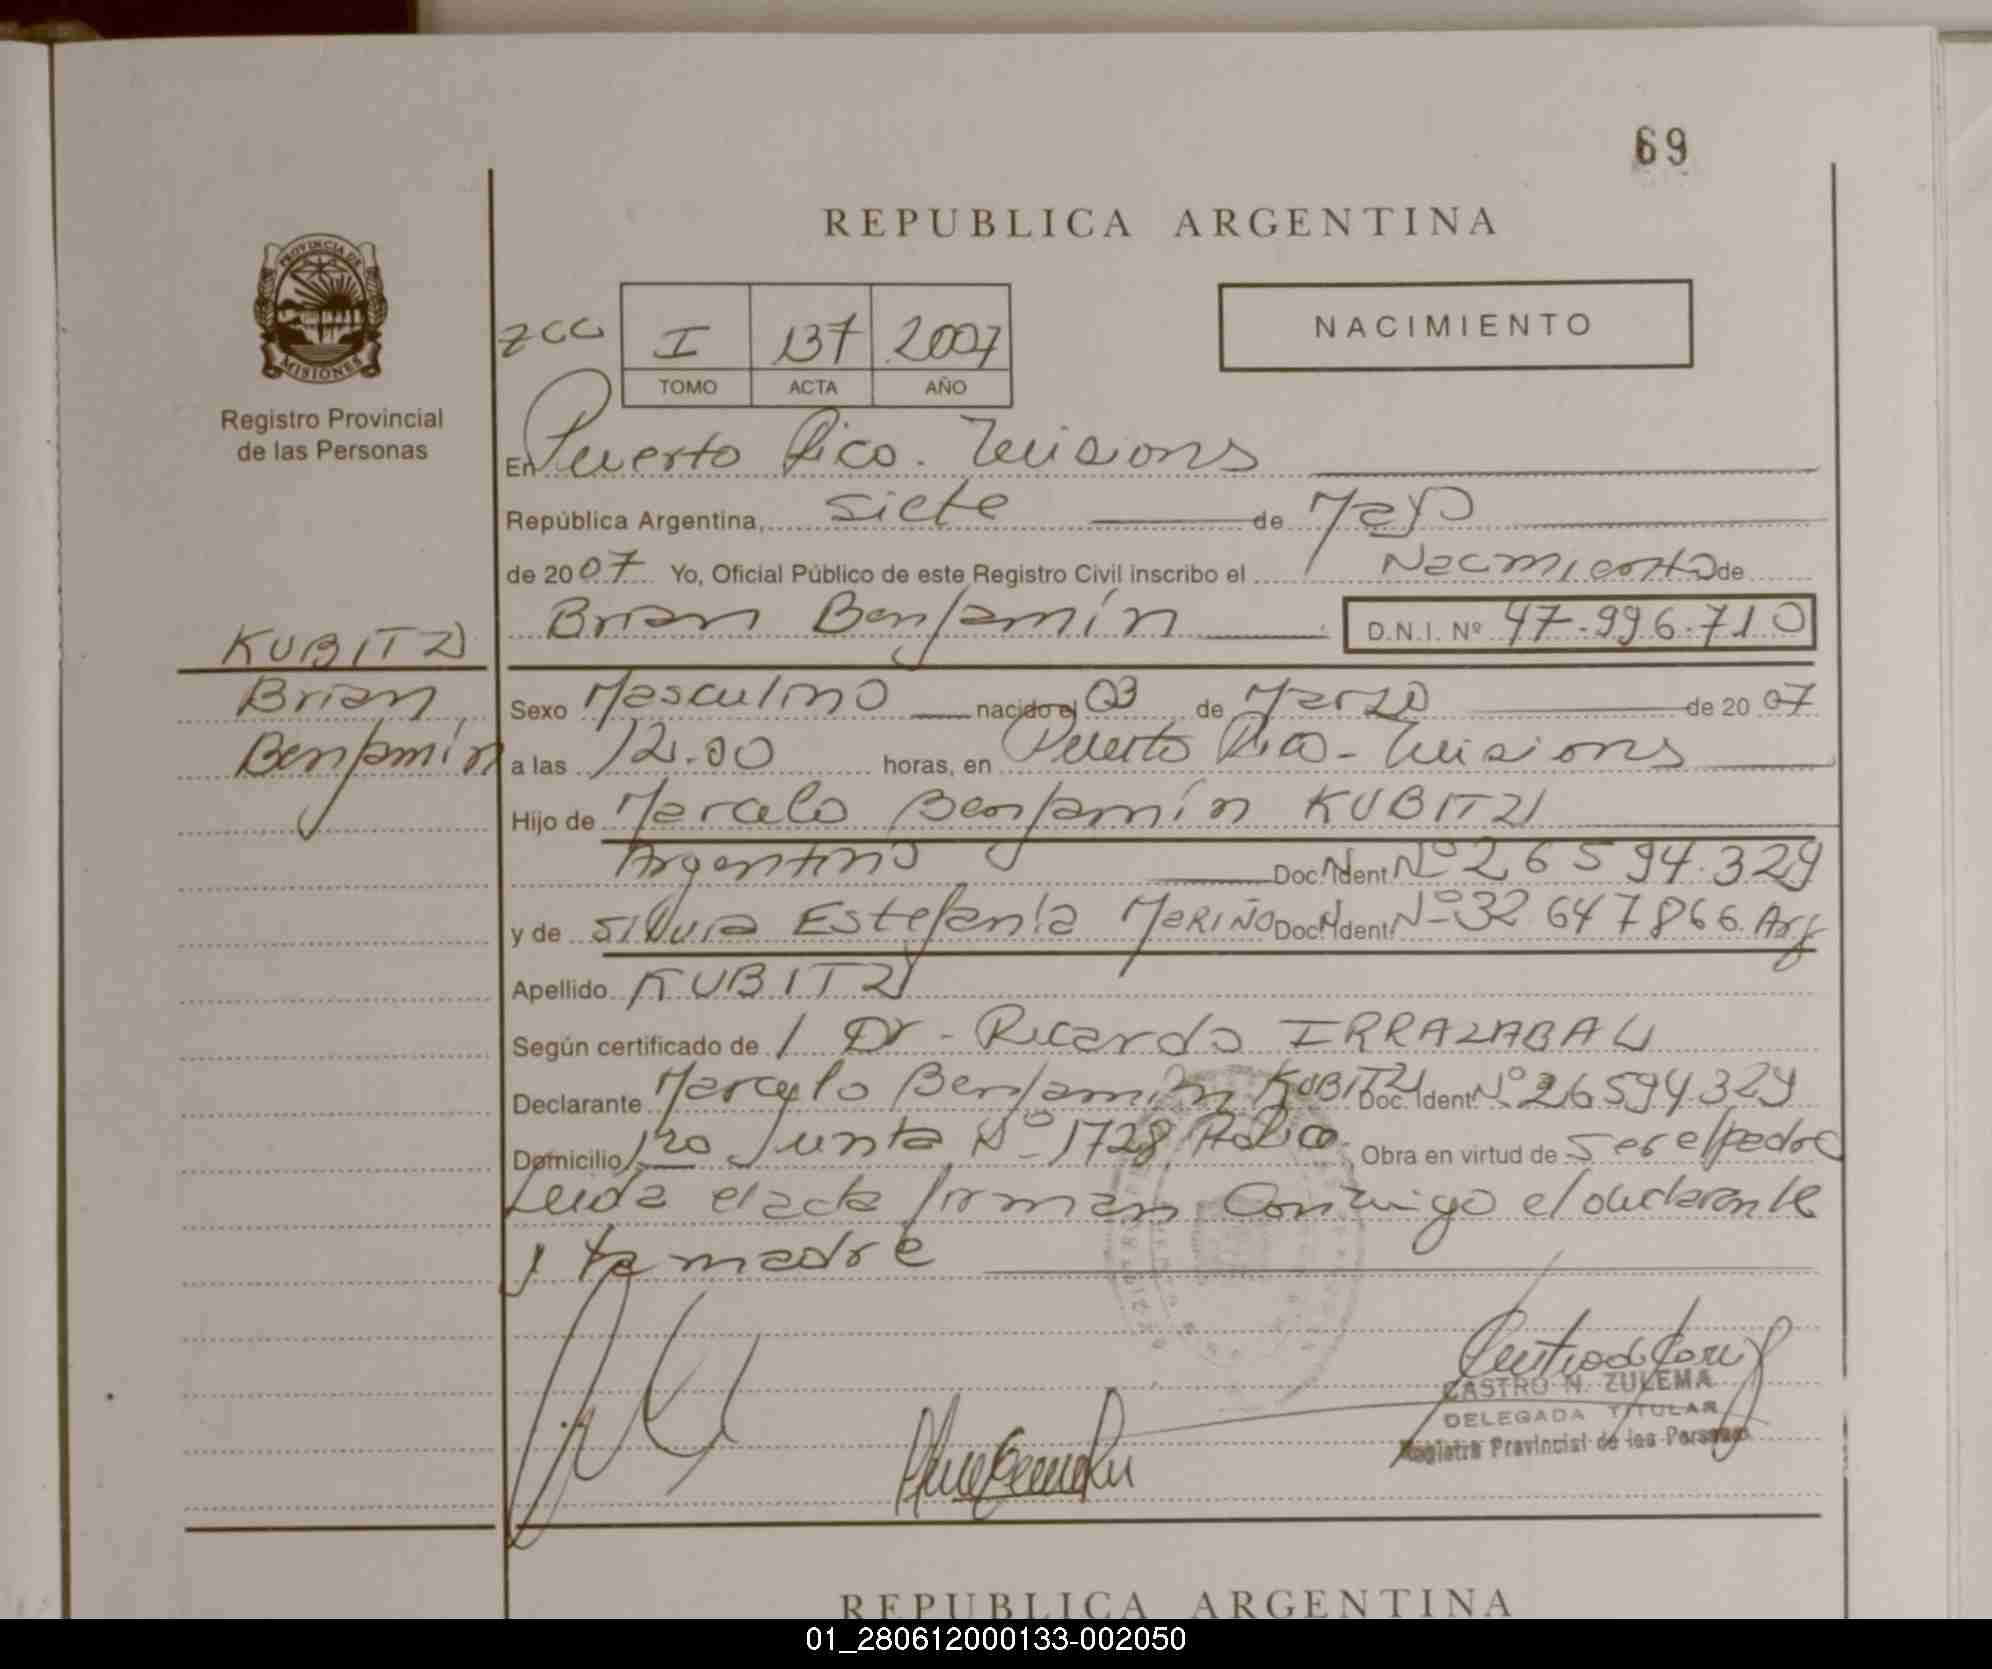 69
REPUBLICA ARGENTINA
PROVINCIA DE
MISIONES
Registro Provincial
de las Personas
zcc I 137 2007
TOMO ACTA AÑO
NACIMIENTO
En Puerto Rico. Misiones
República Argentina, siete de Mayo
de 2007 Yo, Oficial Público de este Registro Civil inscribo el Nacimiento de
Brian Benjamín D.N.I. Nº 47.996.710
KUBITZ
Brian
Benjamín
Sexo Masculino nacido el 03 de Marzo de 2007
a las 12.00 horas, en Puerto Rico - Misiones
Hijo de Marcelo Benjamín KUBITZ
Argentino Doc. Ident. Nº 26 594.329
y de Silvia Estefanía MARIÑO Doc. Ident. Nº 32 647 866. Arg
Apellido KUBITZ
Según certificado de / Dr - Ricardo IRRAZABAL
Declarante Marcelo Benjamín KUBITZ Doc. Ident. Nº 26 594.329
Domicilio 1ra Junta Nº 1728 Obra en virtud de ser el padre
Leída el acta firman Conmigo el declarante
y la madre
CASTRO N. ZULEMA
DELEGADA TITULAR
Registro Provincial de las Personas
REPUBLICA ARGENTINA
01_280612000133-002050